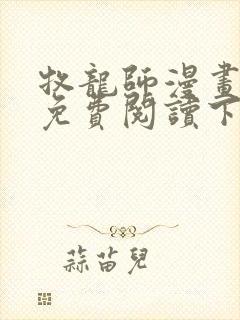 牧龍師漫畫
免費閱讀下
蒜苗兒